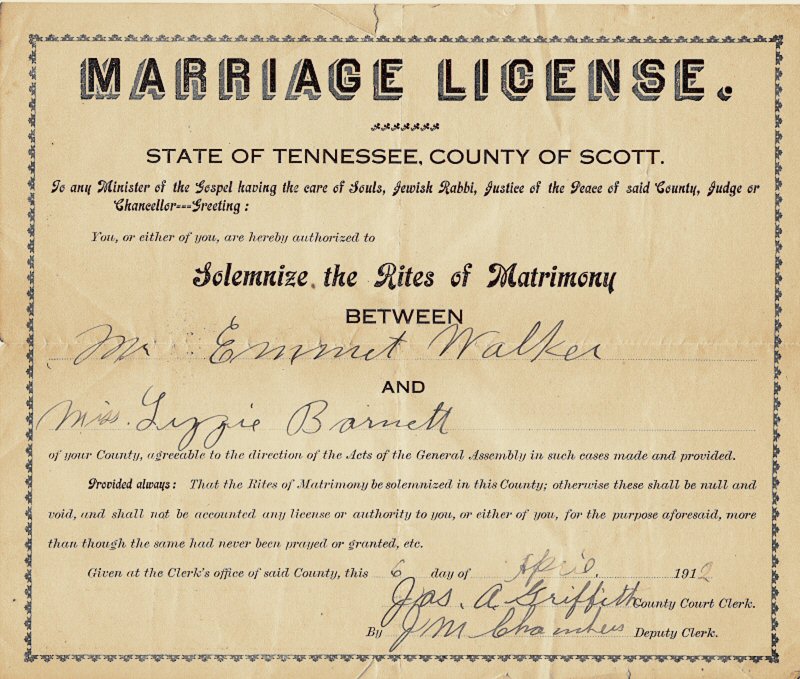 MARRIAGE LICENSE.
STATE OF TENNESSEE, COUNTY OF SCOTT.
To any Minister of the Gospel having the care of Souls, Jewish Rabbi, Justice of the Peace of said County, Judge or
Chancellor---Greeting:
You, or either of you, are hereby authorized to
Solemnize the Rites of Matrimony
BETWEEN
Mr Emmet Walker
AND
Miss. Lizzie Barnett
of your County, agreeable to the direction of the Acts of the General Assembly in such cases made and provided.
Provided always: That the Rites of Matrimony be solemnized in this County; otherwise these shall be null and
void, and shall not be accounted any license or authority to you, or either of you, for the purpose aforesaid, more
than though the same had never been prayed or granted, etc.
Given at the Clerk's office of said County, this 6 day of April. 1912
Jas. A. Griffith County Court Clerk.
By J M Chambers Deputy Clerk.